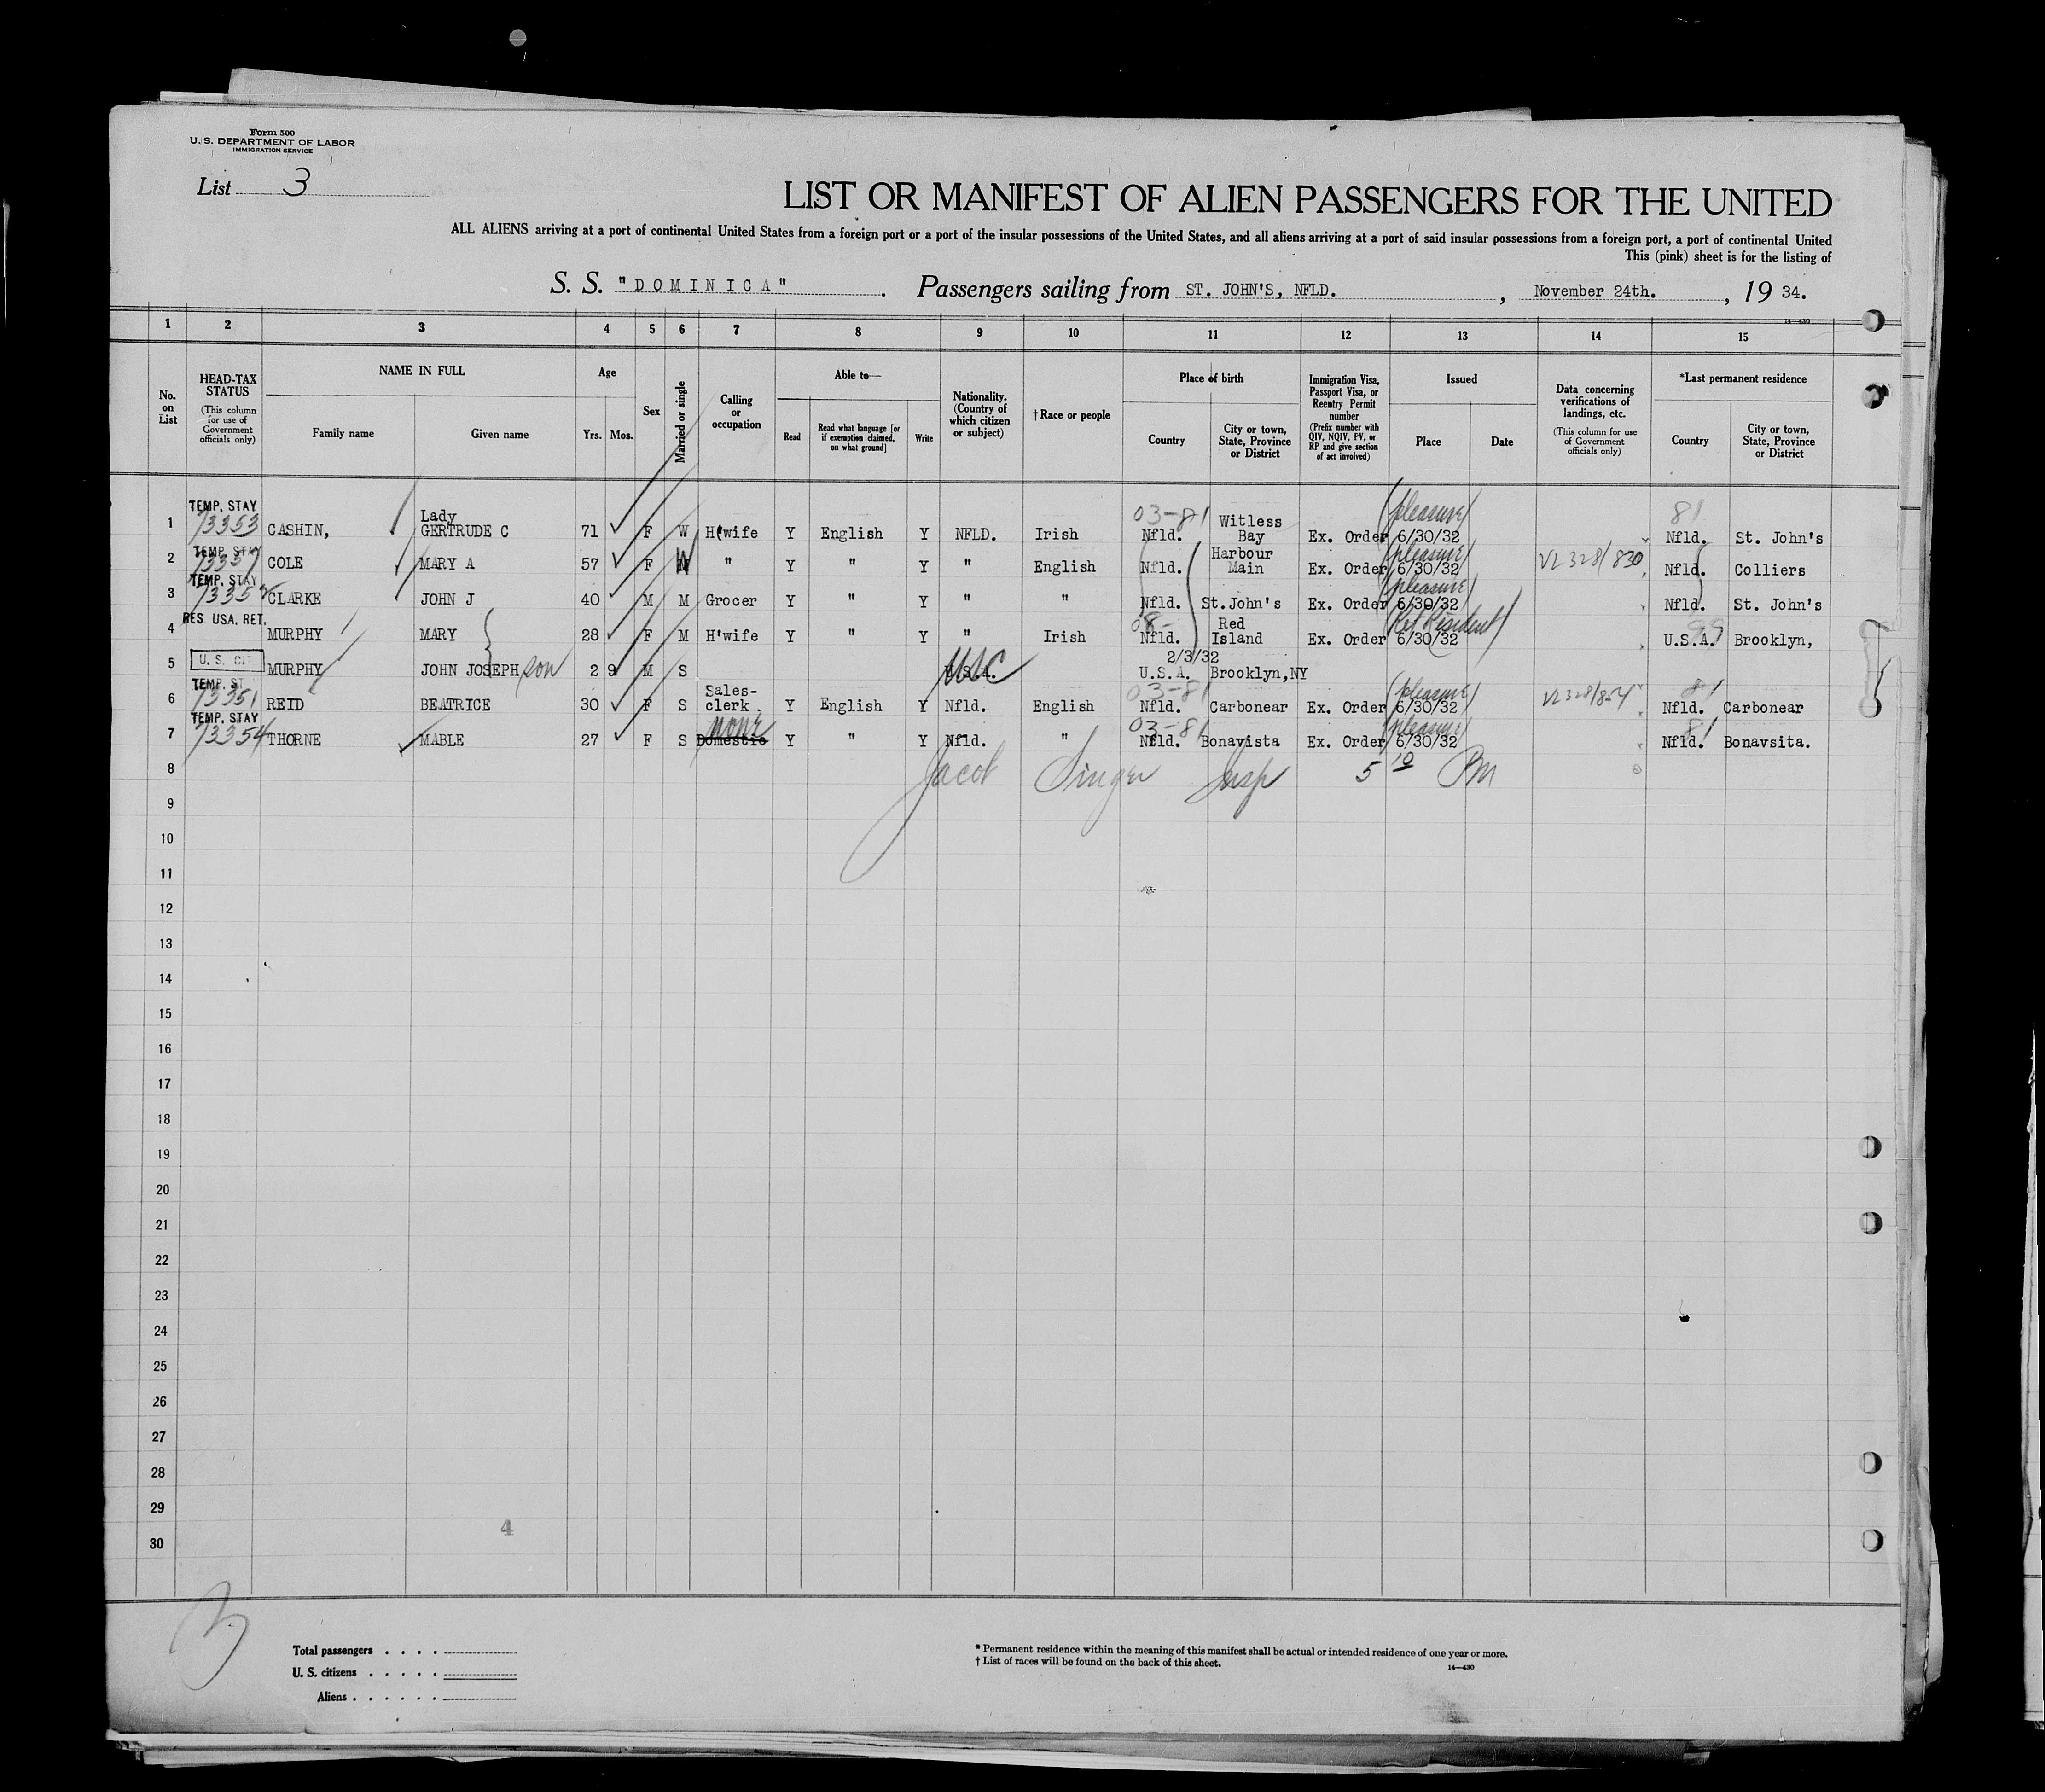 Form 500
U. S. DEPARTMENT OF LABOR
IMMIGRATION SERVICE
List 3
LIST OR MANIFEST OF ALIEN PASSENGERS FOR THE UNITED
ALL ALIENS arriving at a port of continental United States from a foreign port or a port of the insular possessions of the United States, and all aliens arriving at a port of said insular possessions from a foreign port, a port of continental United
This (pink) sheet is for the listing of
S. S. "DOMINICA" . Passengers sailing from ST. JOHN'S, NFLD. , November 24th. , 19 34.
14—430
1 2 3 4 5 6 7 8 9 10 11 12 13 14 15
No. on List
HEAD-TAX STATUS (This column for use of Government officials only)
NAME IN FULL
Family name Given name
Age
Yrs. Mos.
Sex
Married or single
Calling or occupation
Able to—
Read
Read what language [or if exemption claimed, on what ground]
Write
Nationality. (Country of which citizen or subject)
† Race or people
Place of birth
Country
City or town, State, Province or District
Immigration Visa, Passport Visa, or Reentry Permit number (Prefix number with QIV, NQIV, PV, or RP and give section of act involved)
Issued
Place Date
Data concerning verifications of landings, etc. (This column for use of Government officials only)
*Last permanent residence
Country
City or town, State, Province or District
1 TEMP. STAY 73353 CASHIN, Lady GERTRUDE C 71 F W H'wife Y English Y NFLD. Irish 03-81 Nfld. Witless Bay Ex. Order (pleasure) 6/30/32 81 Nfld. St. John's
2 TEMP. STAY COLE MARY A 57 F W " Y " Y " English Nfld. Harbour Main Ex. Order (pleasure) 6/30/32 VL 328/830 Nfld. Colliers
3 TEMP. STAY CLARKE JOHN J 40 M M Grocer Y " Y " " Nfld. St.John's Ex. Order (pleasure) 6/30/32 Nfld. St. John's
4 RES USA. RET. MURPHY MARY 28 F M H'wife Y " Y " Irish 08- Nfld. Red Island Ex. Order (Ret Resident) 6/30/32 99 U.S.A. Brooklyn,
5 U. S. CIT MURPHY JOHN JOSEPH son 2 9 M S USC 2/3/32 U.S.A. Brooklyn,NY
6 TEMP. ST 73351 REID BEATRICE 30 F S Sales-clerk. Y English Y Nfld. English 03-81 Nfld. Carbonear Ex. Order (pleasure) 6/30/32 VL328/854 81 Nfld. Carbonear
7 TEMP. STAY 73354 THORNE MABLE 27 F S none Domestic Y " Y Nfld. " 03-81 Nfld. Bonavista Ex. Order (pleasure) 6/30/32 81 Nfld. Bonavsita.
8 Jacob Singer Insp 5 10 PM
9
10
11
12
13
14
15
16
17
18
19
20
21
22
23
24
25
26
27
28
29
4
30
Total passengers . . . .
U. S. citizens . . . . .
Aliens . . . . . .
* Permanent residence within the meaning of this manifest shall be actual or intended residence of one year or more.
† List of races will be found on the back of this sheet.
14—430